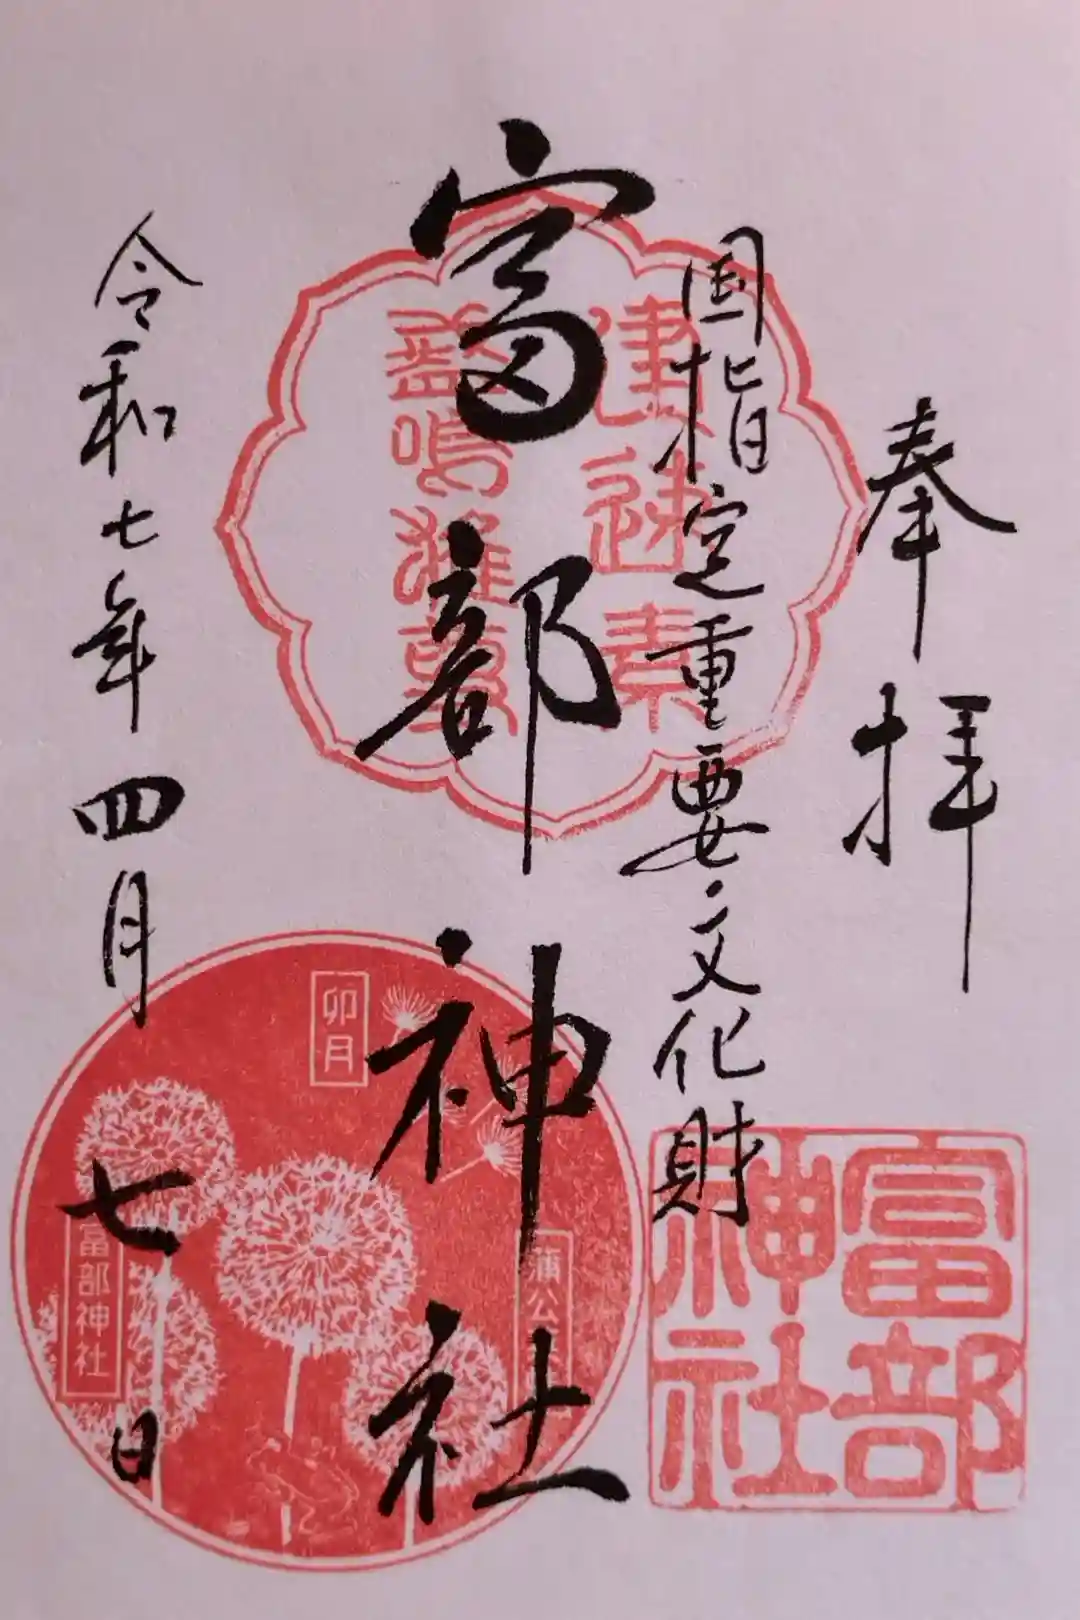 奉拝
国指定重要文化財
富部神社
令和七年四月七日
建速素
盞嗚雅尊
富部
神社
卯月
蒲公
富部神社